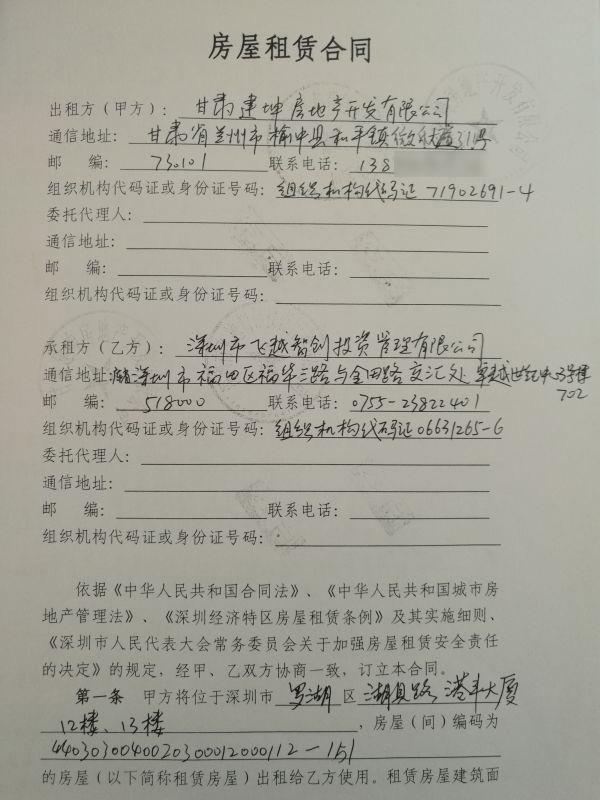 房屋租赁合同
出租方（甲方）：甘肃建坤房地产开发有限公司
通信地址：甘肃省兰州市榆中县和平镇徽 31号
邮 编：730101 联系电话：138
组织机构代码证或身份证号码：组织机构代码证 71902691-4
委托代理人：
通信地址：
邮 编： 联系电话：
组织机构代码证或身份证号码：
承租方（乙方）：深圳市飞越智创投资管理有限公司
通信地址：深圳市福田区福华三路与金田路交汇处卓越世纪中心3号楼
702
邮 编：518000 联系电话：0755-23822401
组织机构代码证或身份证号码：组织机构代码证06631265-6
委托代理人：
通信地址：
邮 编： 联系电话：
组织机构代码证或身份证号码：
依据《中华人民共和国合同法》、《中华人民共和国城市房
地产管理法》、《深圳经济特区房屋租赁条例》及其实施细则、
《深圳市人民代表大会常务委员会关于加强房屋租赁安全责任
的决定》的规定，经甲、乙双方协商一致，订立本合同。
第一条 甲方将位于深圳市 罗湖 区 湖贝路 港丰大厦
12楼、13楼，房屋（间）编码为
4403030040020300012000112-151
的房屋（以下简称租赁房屋）出租给乙方使用。租赁房屋建筑面